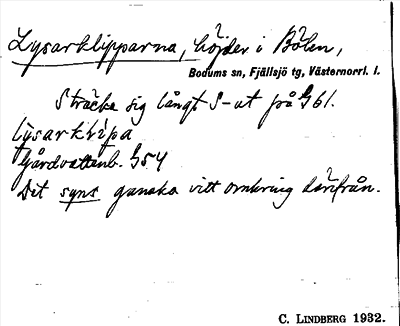 Lysarklipparna, höjder i Bölen,
Bodums sn, Fjällsjö tg, Västernorrl. l.
Sträcka sig långt S-ut på G61.
lysarklipa
Gårdvattenb. G54
Det syns ganska vitt omkring därifrån.
C. LINDBERG 1932.